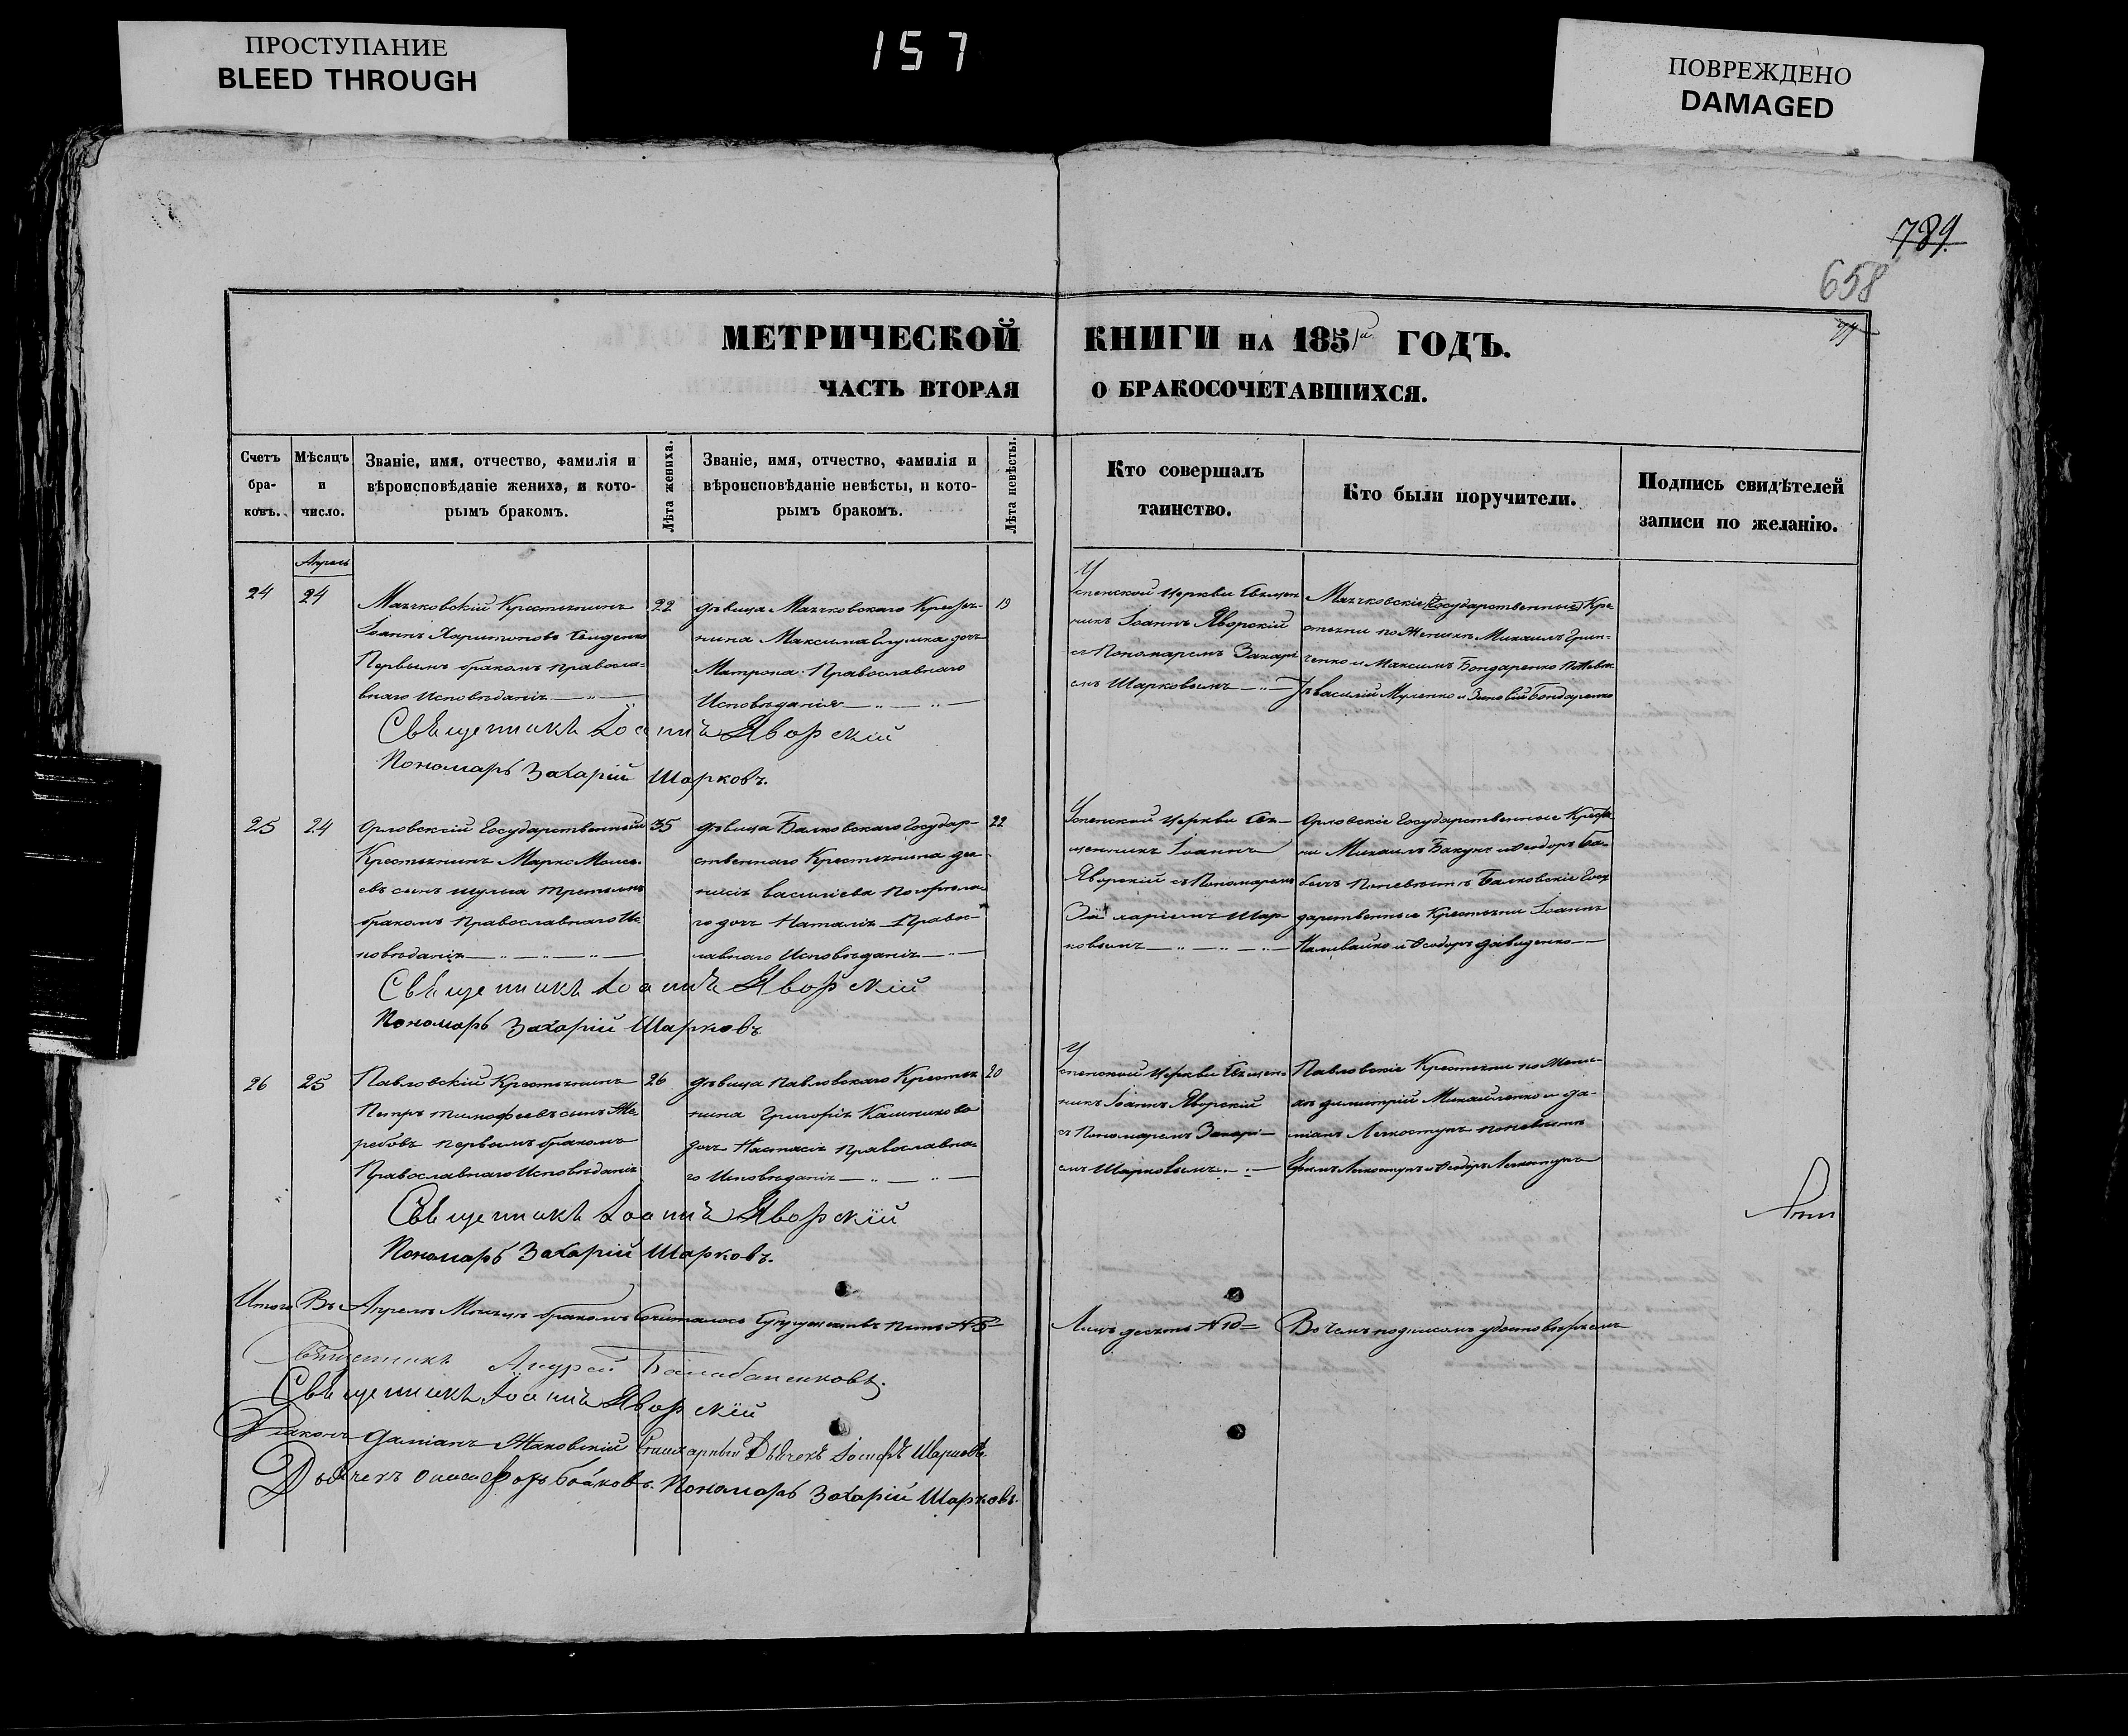 ПРОСТУПАНИЕ
BLEED THROUGH
157
ПОВРЕЖДЕНО
DAMAGED
789.
658
МЕТРИЧЕСКОЙ КНИГИ НА 1851й ГОДЪ.
ЧАСТЬ ВТОРАЯ О БРАКОСОЧЕТАВШИХСЯ.
Счетъ браковъ.
Мѣсяцъ и число.
Званіе, имя, отчество, фамилія и
вѣроисповѣданіе жениха, и кото-
рымъ бракомъ.
Лѣта жениха.
Званіе, имя, отчество, фамилія и
вѣроисповѣданіе невѣсты, и кото-
рымъ бракомъ.
Лѣта невѣсты.
Кто совершалъ
таинство.
Кто были поручители.
Подпись свидѣтелей
записи по желанію.
Апрель
24
24
Маячковскій Крестьянинъ
Іоаннъ Харитоновъ
Первымъ бракомъ правосла-
внаго Исповѣданія
22
дѣвица Маячковскаго Кресть-
нина Максима Глушка дочь
Матрона Православнаго
Исповѣданія
19
Успенской Церкви Священ
никъ Іоаннъ Яворскій
съ Пономаремъ Захарі
емъ Шарковымъ
Маячковскіе Государственные Кре
стьяни по Женихѣ Михаилъ Грин-
ченко и Максимъ Бондаренко по Невѣс
тѣ Василій Муленко и Зиновій Бондаренко
Священникъ Іоаннъ Яворскій
Пономарь Захарій Шарковъ.
25
24
Орловскій Государственный
Крестьянинъ Марко Моисе-
евъ сынъ Шульга третьимъ
бракомъ Православнаго Ис
повѣданія
35
дѣвица Балковскаго Государ-
ственнаго Крестьянина
Василіева Погорѣла-
го дочь Наталія Правос-
лавнаго Исповѣданія
22
Успенской Церкви Свя-
щенникъ Іоаннъ
Яворскій съ Пономаремъ
Захаріемъ Шар-
ковымъ
Орловскіе Государственные Кресть
ни Михаилъ Бакунъ и Феодоръ Ба-
бичъ по невѣстѣ Балковскіе Госу
дарственные Крестьяни Іоаннъ
Наливайко и Феодоръ Давиденко
Священникъ Іоаннъ Яворскій
Пономарь Захарій Шарковъ.
26
25
Павловскій Крестьянинъ
Петръ Тимофеевъ сынъ Же
ребовъ первымъ бракомъ
Православнаго Исповѣданія
26
дѣвица Павловскаго Крестья
нина Григорія Калашникова
дочь Настасія Православна-
го Исповѣданія
20
Успенской Церкви Священ-
никъ Іоаннъ Яворскій
съ Пономаремъ Захарі-
емъ Шарковымъ
Павловскіе Крестьяни по Жени-
хѣ Димитрій Михайленко и Да-
міанъ Легкоступъ по невѣстѣ
Ефимъ Легкоступъ и Феодоръ Легкоступъ
Священникъ Іоаннъ Яворскій
Пономарь Захарій Шарковъ.
Итого Въ Апрелѣ Месяцѣ бракомъ Сочиталось Супружествъ пять № 5 Лицъ десять № 10 В чемъ подписомъ удостовѣряемъ
Священникъ Андрей Балабаненковъ.
Священникъ Іоаннъ Яворскій
Діаконъ Даміанъ Маковскій Дьячекъ Іосифъ
Дьячекъ Онисифоръ Бойковъ. Пономарь Захарій Шарковъ.